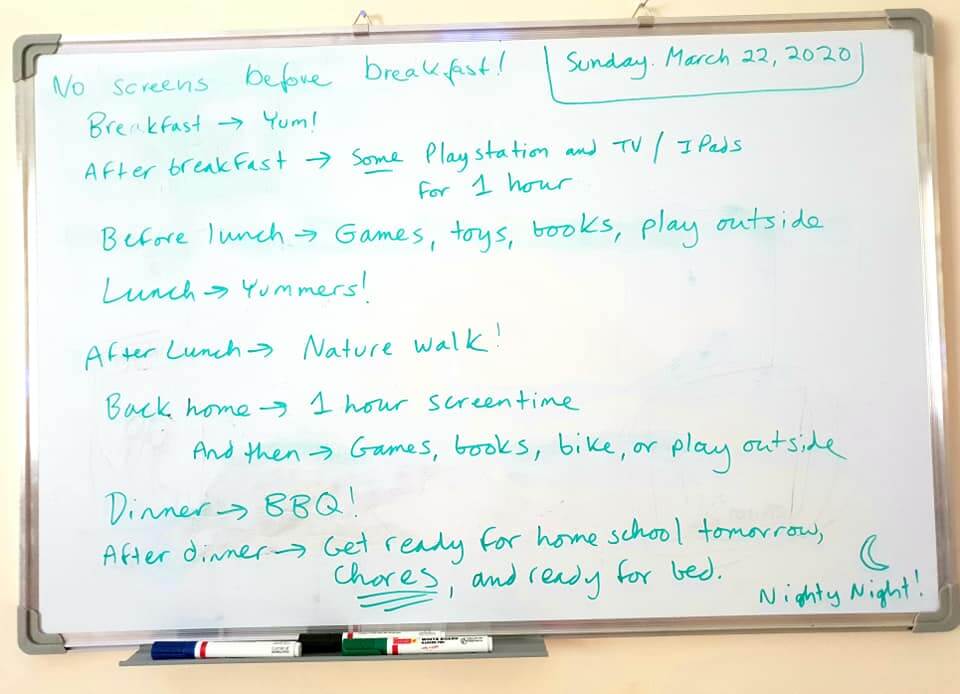 No screens before breakfast!
Sunday. March 22, 2020
Breakfast → Yum!
After breakfast → Some Playstation and TV / IPads
for 1 hour
Before lunch → Games, toys, books, play outside
Lunch → Yummers!
After Lunch → Nature walk!
Back home → 1 hour screentime
And then → Games, books, bike, or play outside
Dinner → BBQ!
After dinner → Get ready for home school tomorrow,
chores, and ready for bed.
Nighty Night!
WHITE BOARD